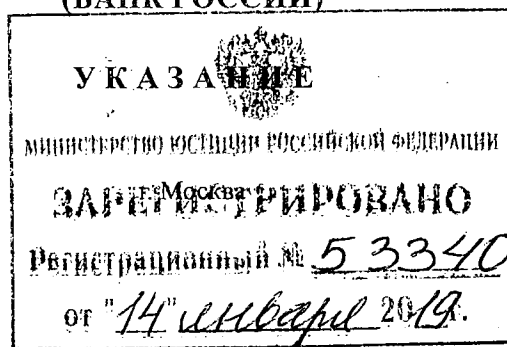 (БАНК РОССИИ)
УКАЗАНИЕ
МИНИСТЕРСТВО ЮСТИЦИИ РОССИЙСКОЙ ФЕДЕРАЦИИ
г. Москва
ЗАРЕГИСТРИРОВАНО
Регистрационный № 53340
от "14" января 2019 г.